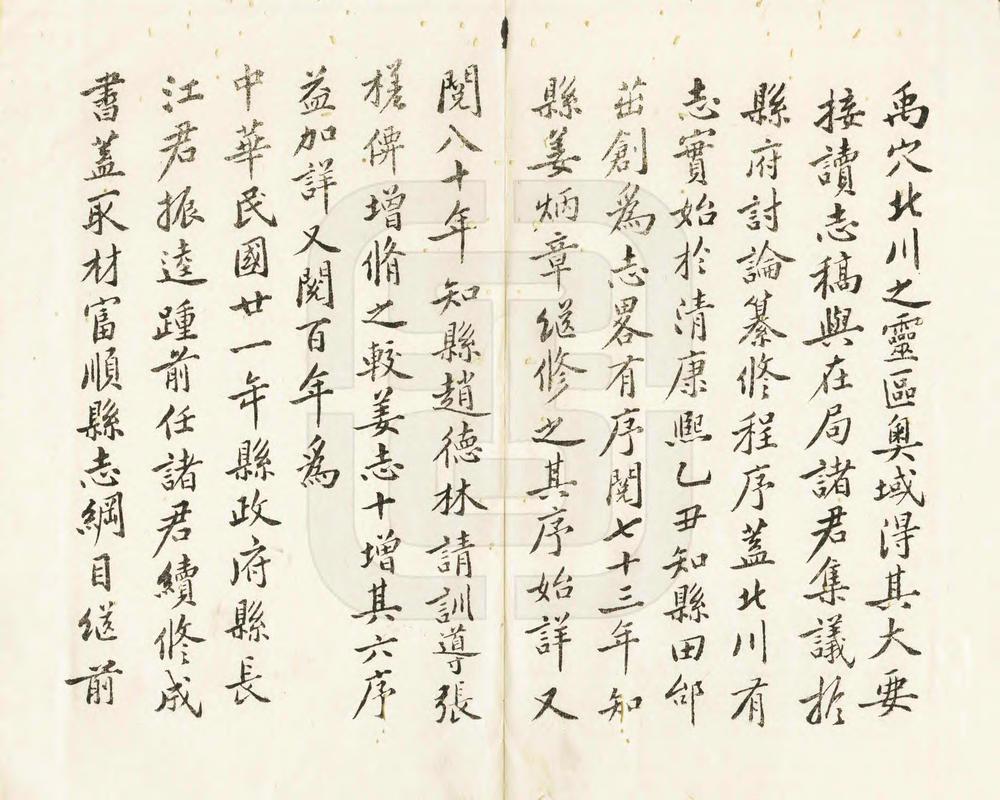 禹穴北川之靈區奧域得其大要
接讀志稿與在局諸君集議於
縣府討論纂修程序蓋北川有
志實始於清康熙乙丑知縣田邰
茁創為志畧有序閱七十三年知
縣姜炳章繼修之其序始詳又
閱八十年知縣趙德林請訓導張
槎俾增脩之較姜志十增其六序
益加詳又閱百年為
中華民國廿一年縣政府縣長
江君振逵踵前任諸君續修成
書蓋取材富順縣志綱目繼前